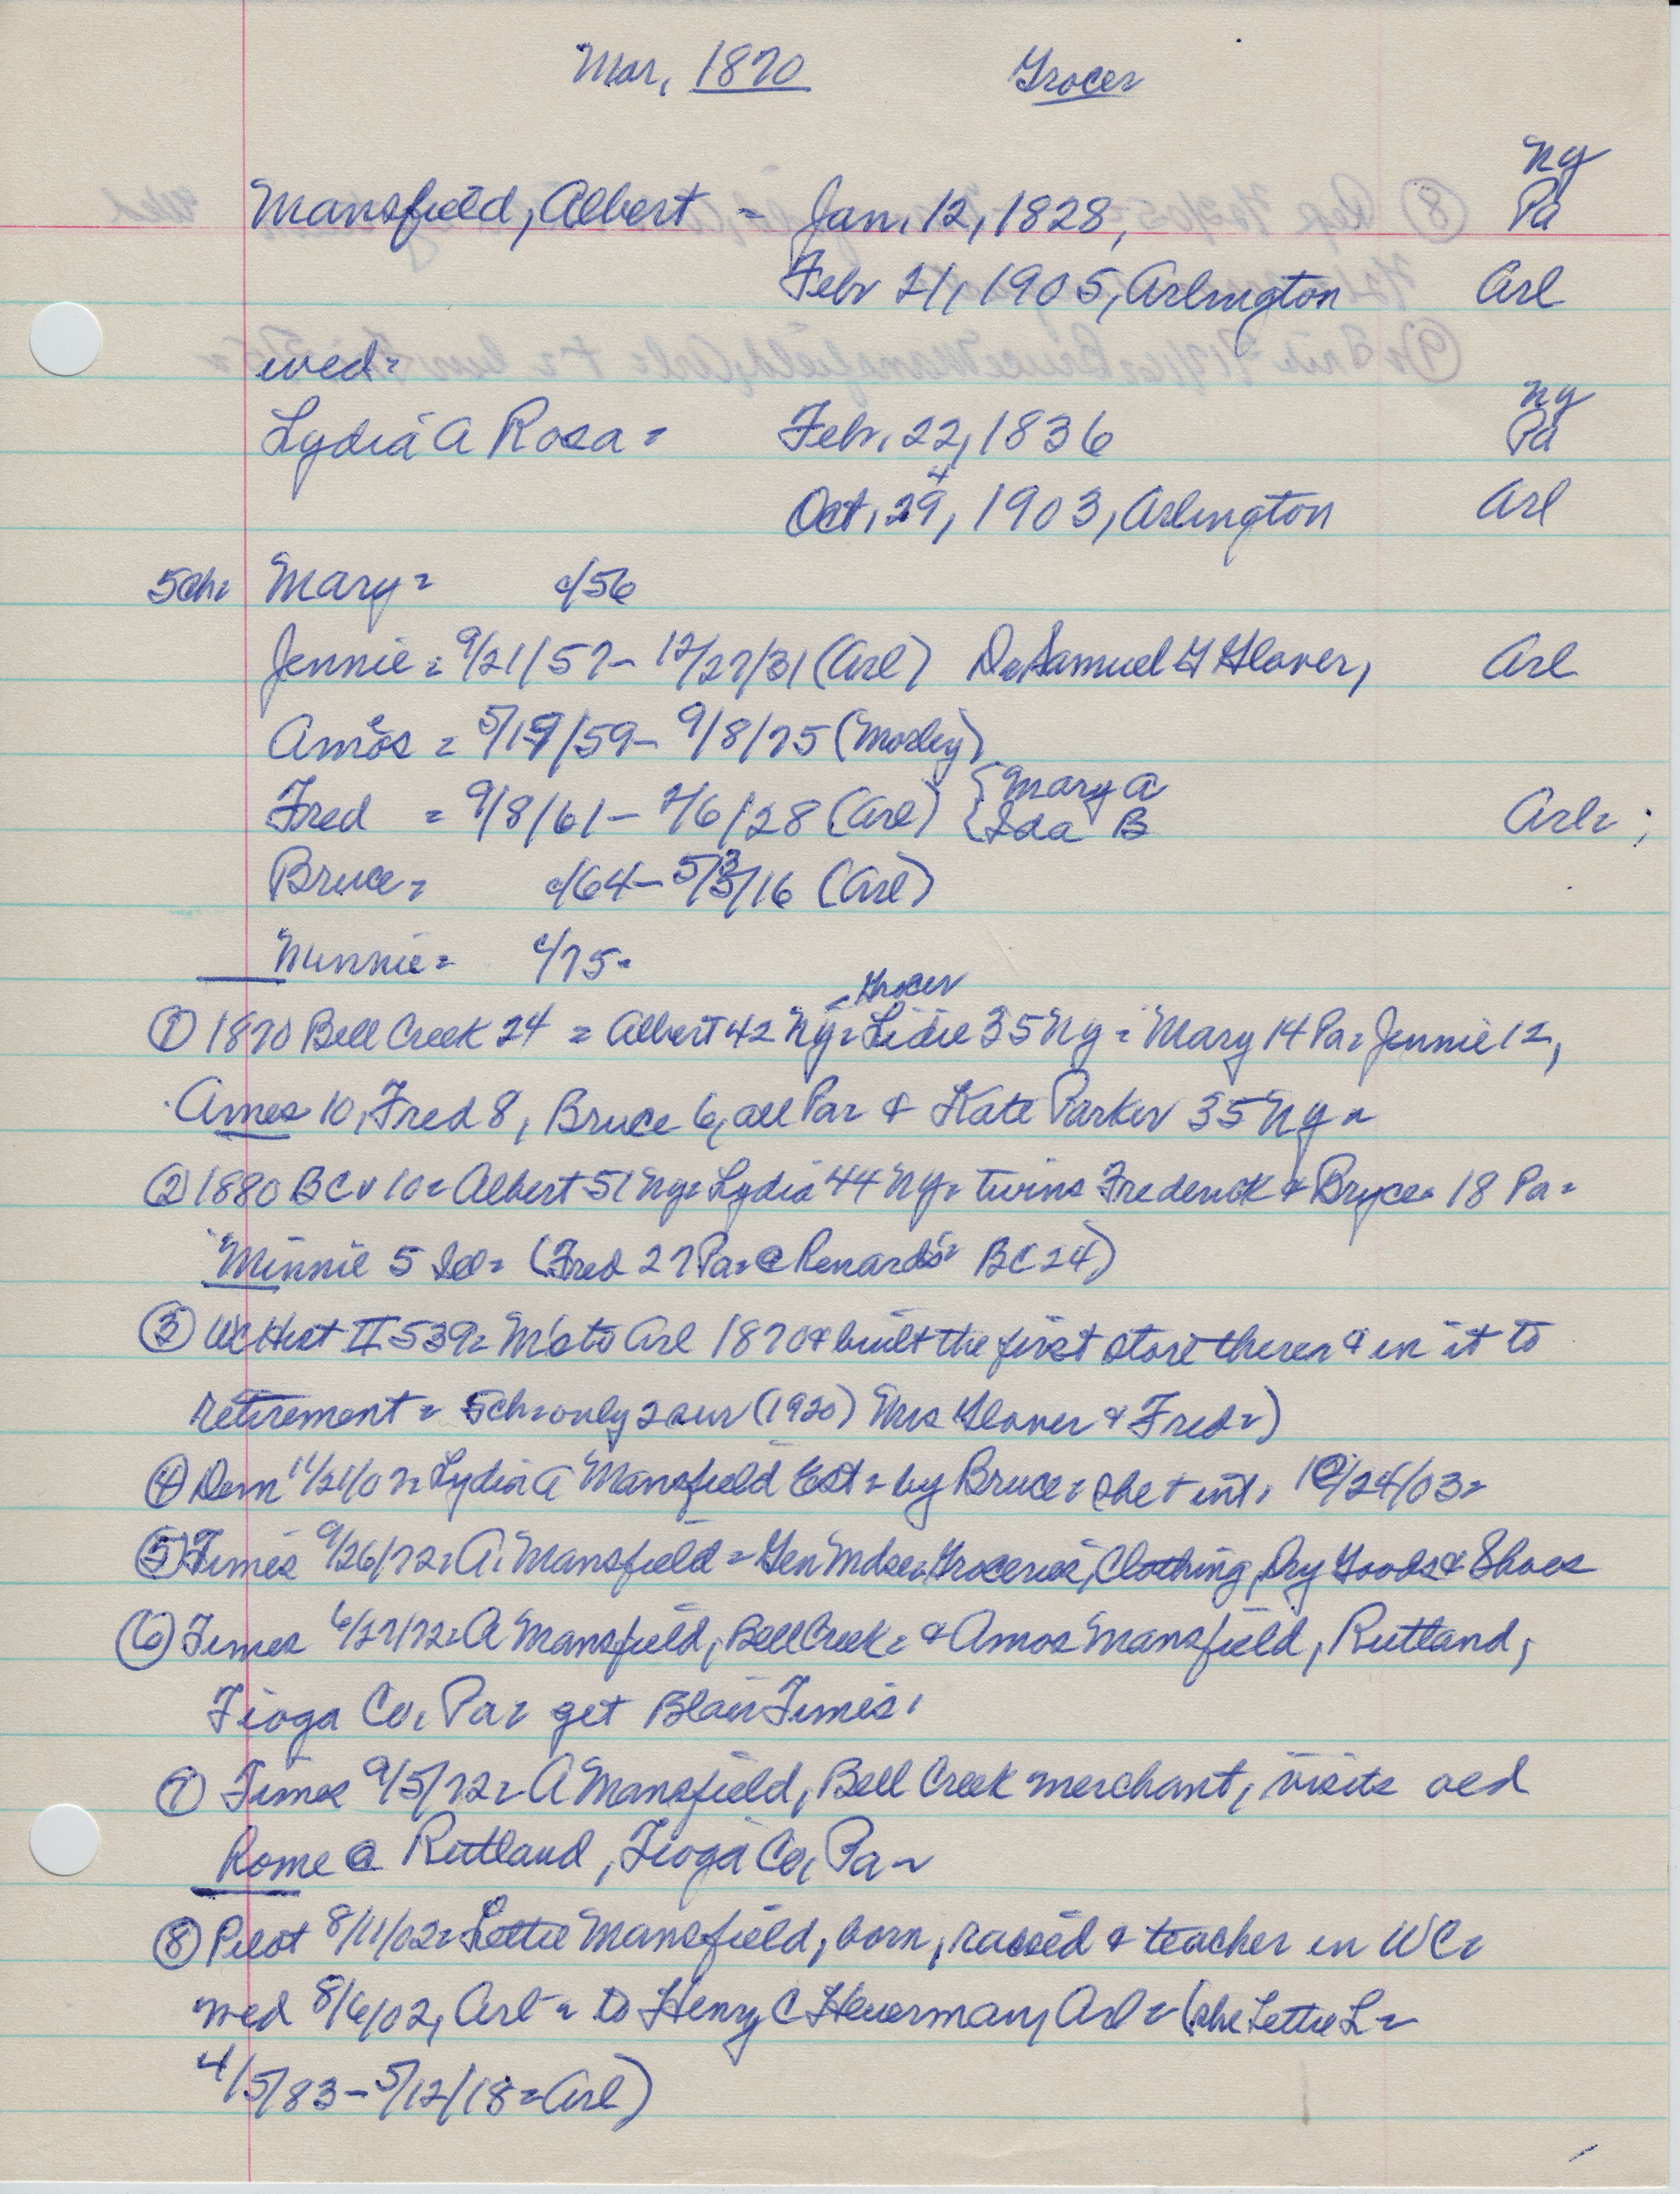 Mar, 1870 Grocer
NY
Mansfield, Albert - Jan, 12, 1828, Pa
Febr 21, 1905, Arlington Arl
wed=
NY
Lydia A Rosa = Febr, 22, 1836 Pa
4
Oct, 29, 1903, Arlington Arl
5ch= Mary = c/56
Jennie = 9/21/57- 12/27/31 (Arl) Dr Samuel G Glover, Arl
Amos = 5/19/59- 9/8/75 (Mosley)
{Mary A
Fred = 9/8/61- 7/6/28 (Arl) {Ida B Arl= ;
Bruce = c/64- 5/3/16 (Arl)
Minnie = c/75-
Grocer
① 1870 Bell Creek 24 = Albert 42 NY= Lidie 35 NY = Mary 14 Pa= Jennie 12,
Ames 10, Fred 8, Bruce 6, all Pa= & Kate Parker 35 NY=
② 1880 BC v 10= Albert 51 NY= Lydia 44 NY= twins Frederick & Bryce= 18 Pa=
Minnie 5 Ill= (Fred 27 Pa= @ Renards= BC 24)
③ WC Hist II 539= M's to Arl 1870 & built the first store there= & in it to
retirement = 5ch= only 2 sur (1920) Mrs Glover & Fred=)
④ Dem 11/21/07= Lydia A Mansfield Est= by Bruce= she + int, 10/24/03=
⑤ Times 9/26/72= A. Mansfield = Gen Mdse= Groceries, Clothing, Dry Goods & Shoes
⑥ Times 6/27/72= A Mansfield, Bell Creek= & Amos Mansfield, Rutland,
Tioga Co, Pa= get Blair Times,
⑦ Times 9/5/72= A Mansfield, Bell Creek merchant, visits old
home @ Rutland, Tioga Co, Pa=
⑧ Pilot 8/11/02= Lottie Mansfield, born, raised & teacher in WC=
wed 8/6/02, Arl= to Henry C Heuerman, Arl= (she Lettie L=
4/5/83- 5/12/18= Arl)